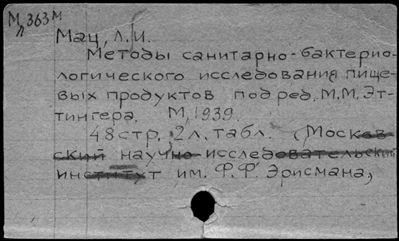 М 363м
Л
Мац, Л.И.
Методы санитарно-бактерио-
логического исследования пище-
вых продуктов под ред. М.М. Эт-
тингера. М, 1939.
48 стр., 2 л. табл. (Москов-
ский научно-исследовательский
институт им. Ф.Ф. Эрисмана)